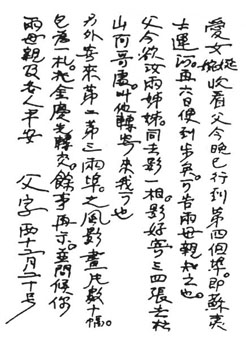 愛女 收看父今晚已行到第四個埠。即蘇夷
士運河。再六日便到步矣。可告兩母親知之也。
父今欲汝兩姊妹。同去影一相。影好寄三四張去松
山阿哥處。叫他轉寄來我可也
另外寄來第二第三兩埠。之風影畫片數十幅。
包為一札。兆全慶光轉交。餘事再示。並問候你
兩母親及各人平安
父字 西十二月二十号